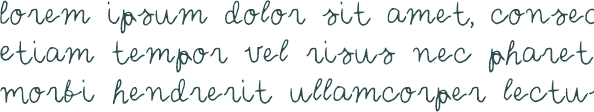 lorem ipsum dolor sit amet, consec
etiam tempor vel risus nec pharet
morbi hendrerit ullamcorper lectu